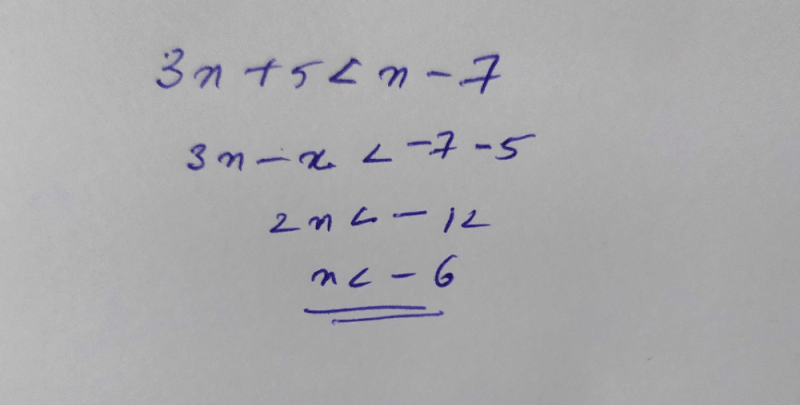 3x + 5 < x - 7
3x - x < -7 - 5
2x < - 12
x < - 6